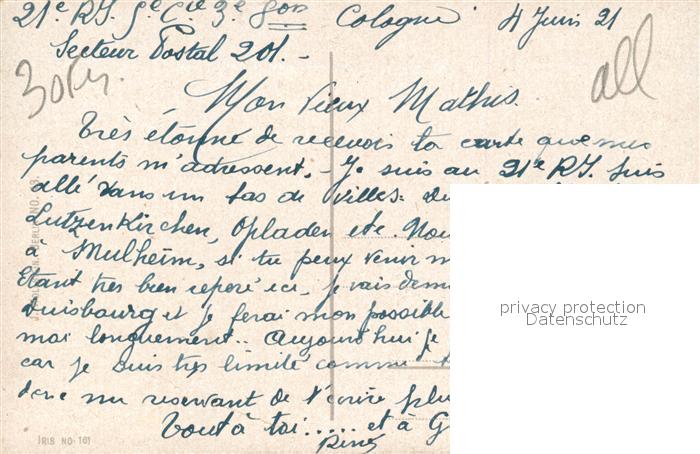 21e R.I. 9e Cie 3e Bon Cologne 4 Juin 21
Secteur Postal 201. -
all
Mon vieux Mathis.
Très étonné de recevoir ta carte que mes
parents m'adressent. - Je suis au 21e R.I. suis
allé dans un tas de villes:
Lutzenkirchen, Opladen etc. Nou
à Mulheim, si tu peux venir m
Etant très bien repéré ici, je vais dem
Duisbourg et je ferai mon possible
moi longuement.. Aujourd'hui je
car je suis très limité comme t
donc me réservant de t'écrire plu
Tout à toi..... et à G
René
IRIS NO. 161
privacy protection
Datenschutz